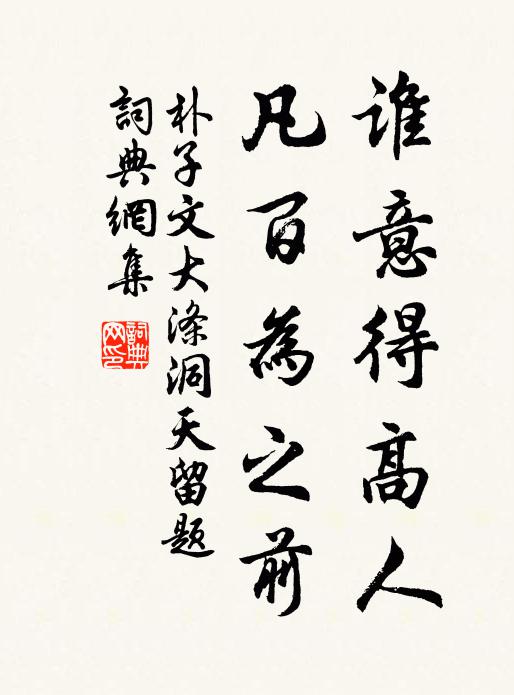 谁意得高人
凡百為之前
朴子文大涤洞天留题
詞典網集
詞典网印